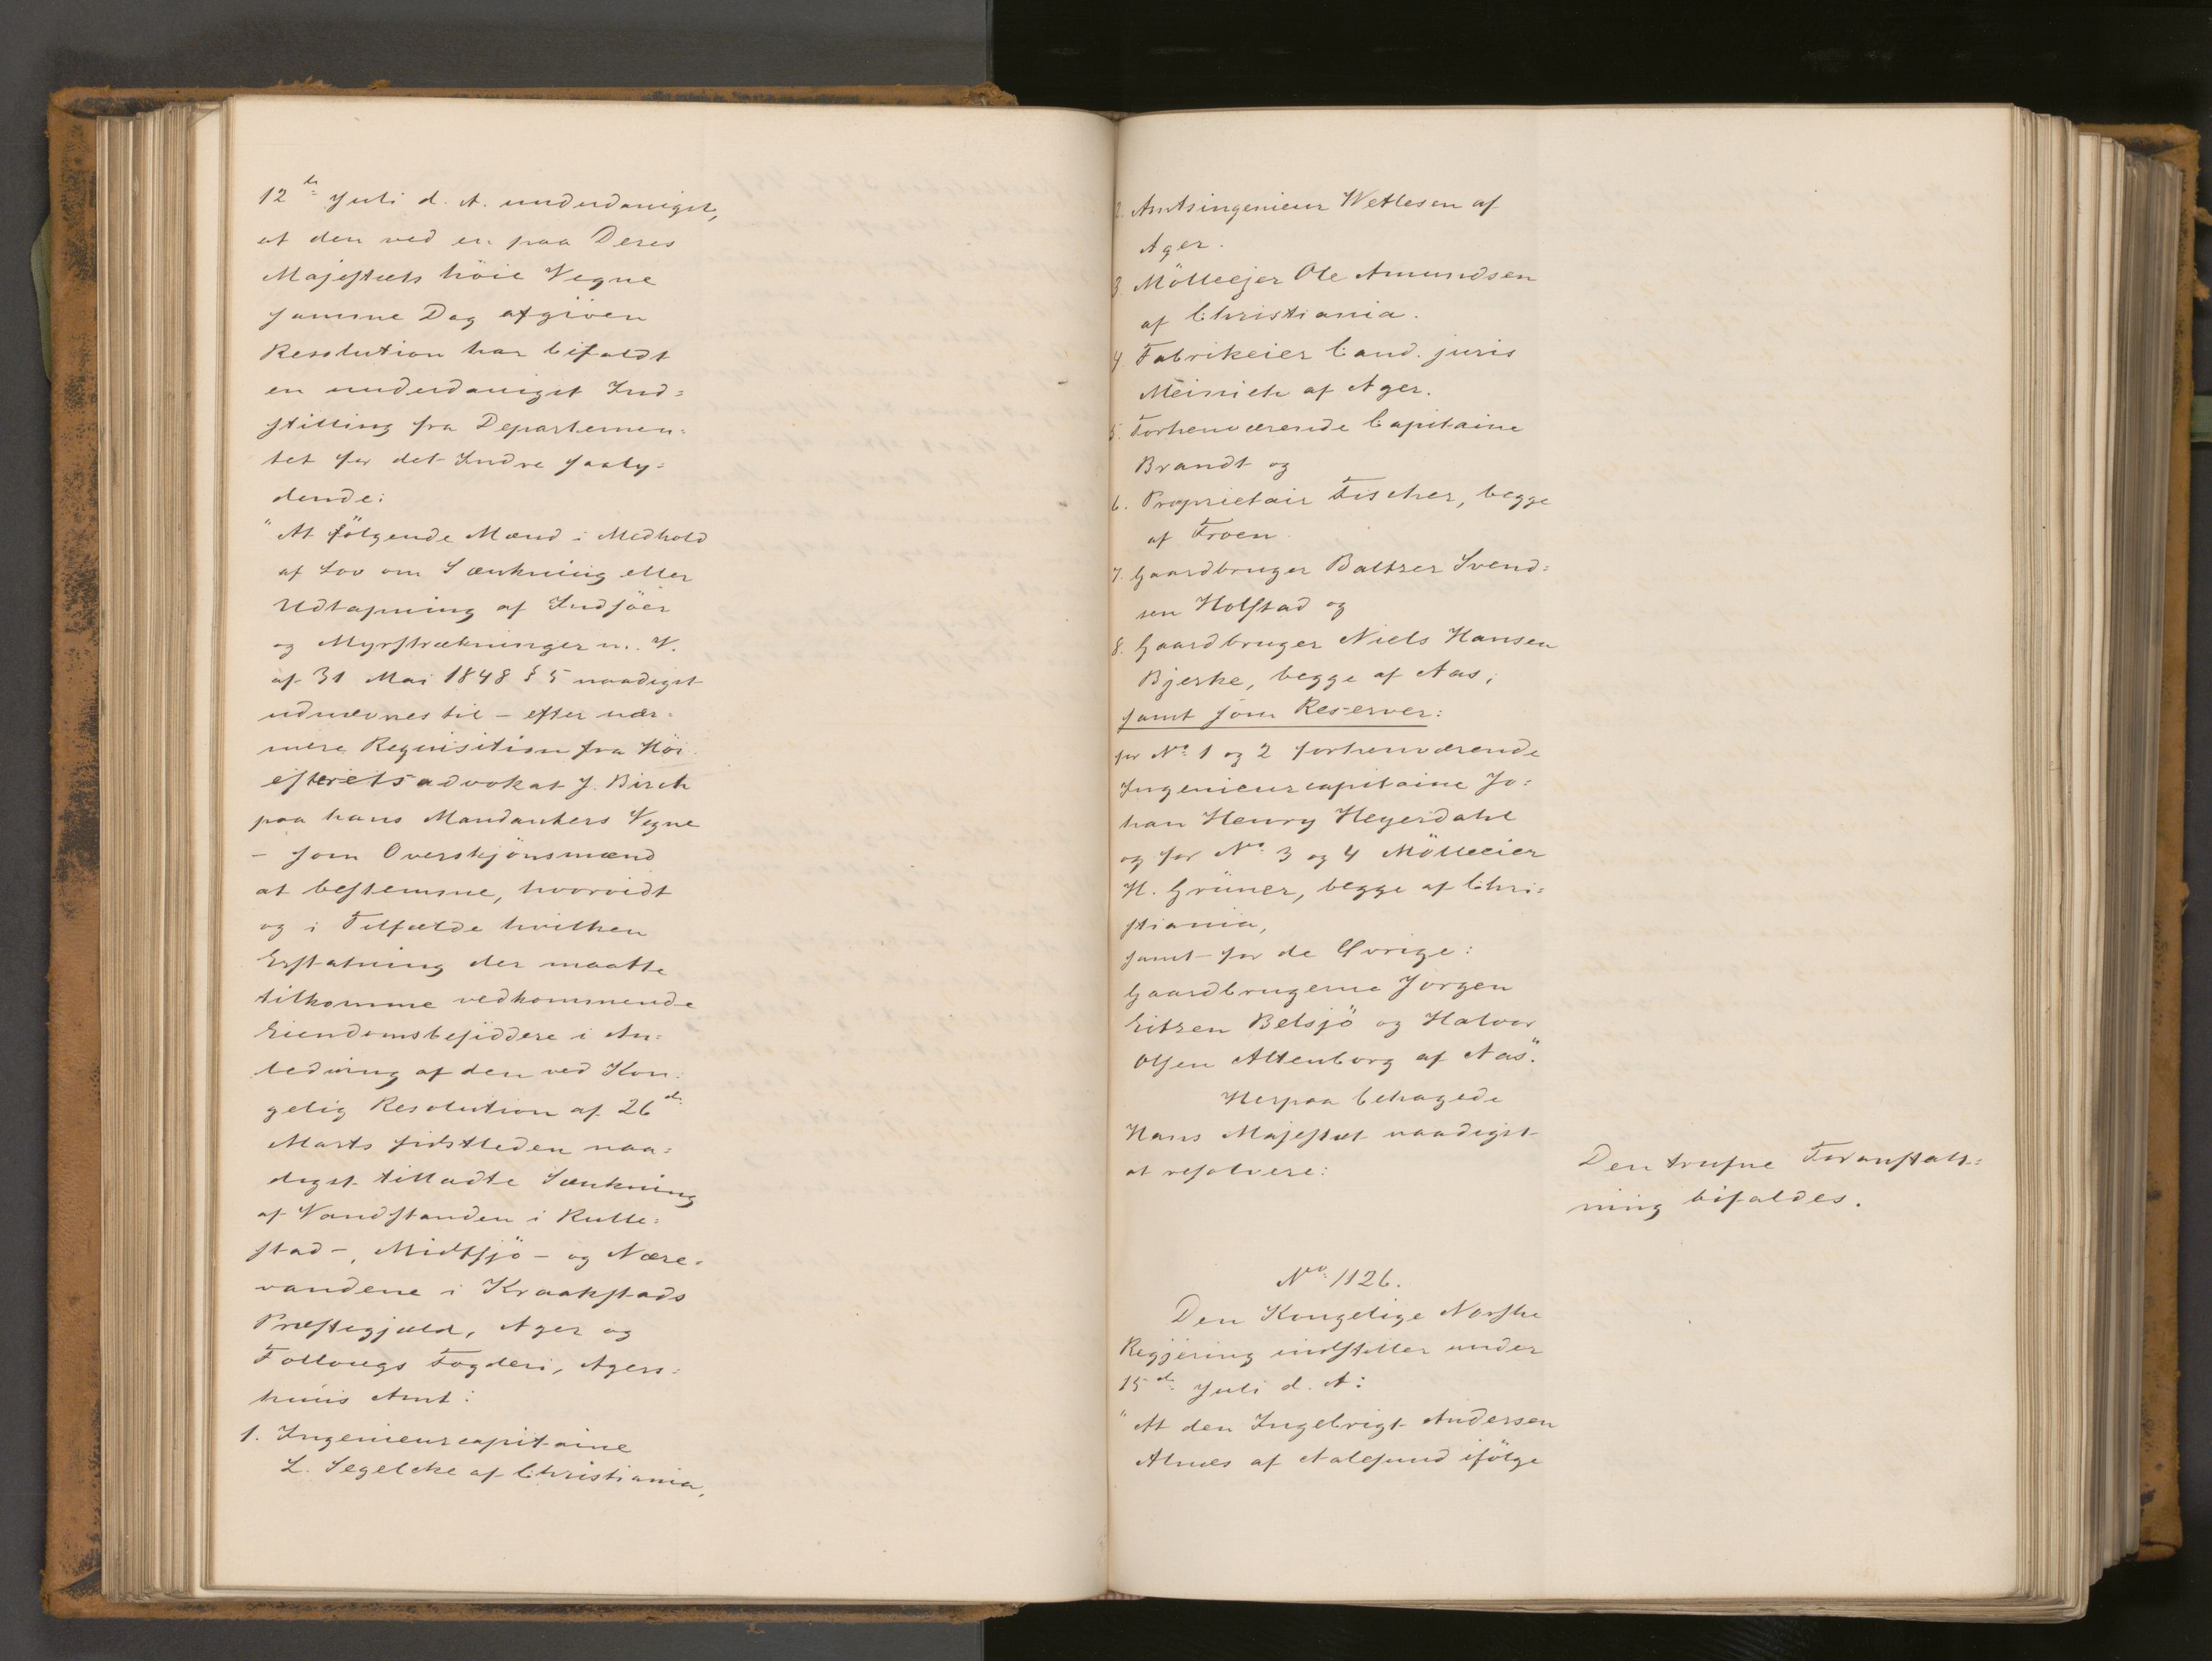 12de Juli d. A. underdanigst,
at den ved en paa Deres
Majestæts höie Vegne
samme Dag afgiven
Resolution har bifaldt
en underdanigst Ind=
stilling fra Departemen=
tet for det Indre saaly=
dende:
"At fölgende Mænd i Medhold
af Lov om Sænkning eller
Udtapning af Indsöer
og Myrstrækninger m. V.
af 31 Mai 1848 § 5 naadigst
udnævnes til - efter nær=
mere Requisition fra Höi=
esteretsadvokat J. Birch
paa hans Mandanters Vegne
- som Overskjönsmænd
at bestemme, hvorvidt
og i Tilfælde hvilken
Erstatning der maatte
tilkomme vedkommende
Eiendomsbesiddere i An=
ledning af den ved Kon=
gelig Resolution af 26de
Marts sidstleden naa=
digst tilladte Sænkning
af Vandstanden i Rulle=
stad-, Midtsjö- og Nære=
vandene i Kraakstads
Præstegjæld, Ager og
Follougs Fogderi, Agers=
huus Amt:
1. Ingenieurcapitaine
L. Segelcke af Christiania,
2. Amtsingenieur Wetlesen af
Ager.
3. Mölleejer Ole Amundsen
af Christiania.
4. Fabrikeier Cand. juris
Meinich af Ager.
5. Forhenværende Capitaine
Brandt og
6. Proprietair Fischer, begge
af Froen.
7. Gaardbruger Baltzer Svend=
sen Holstad og
8. Gaardbruger Niels Hansen
Bjerke, begge af Aas;
samt som Reserver:
for No 1 og 2 forhenværende
Ingenieurcapitaine Jo=
han Henry Heyerdahl
og for No 3 og 4 Mölleeier
H. Grüner, begge af Chri=
stiania,
samt for de Övrige:
Gaardbrugerne Jörgen
Eitzen Belsjö og Halvor
Olsen Altenborg af Aas".
Herpaa behagede
Hans Majestæt naadigst
at resolvere:
Den trufne Foranstalt=
ning bifaldes.
No 1126.
Den Kongelige Norske
Regjering indstiller under
15de Juli d. A:
"At den Ingebrigt Andersen
Alnæs af Aalesund ifölge